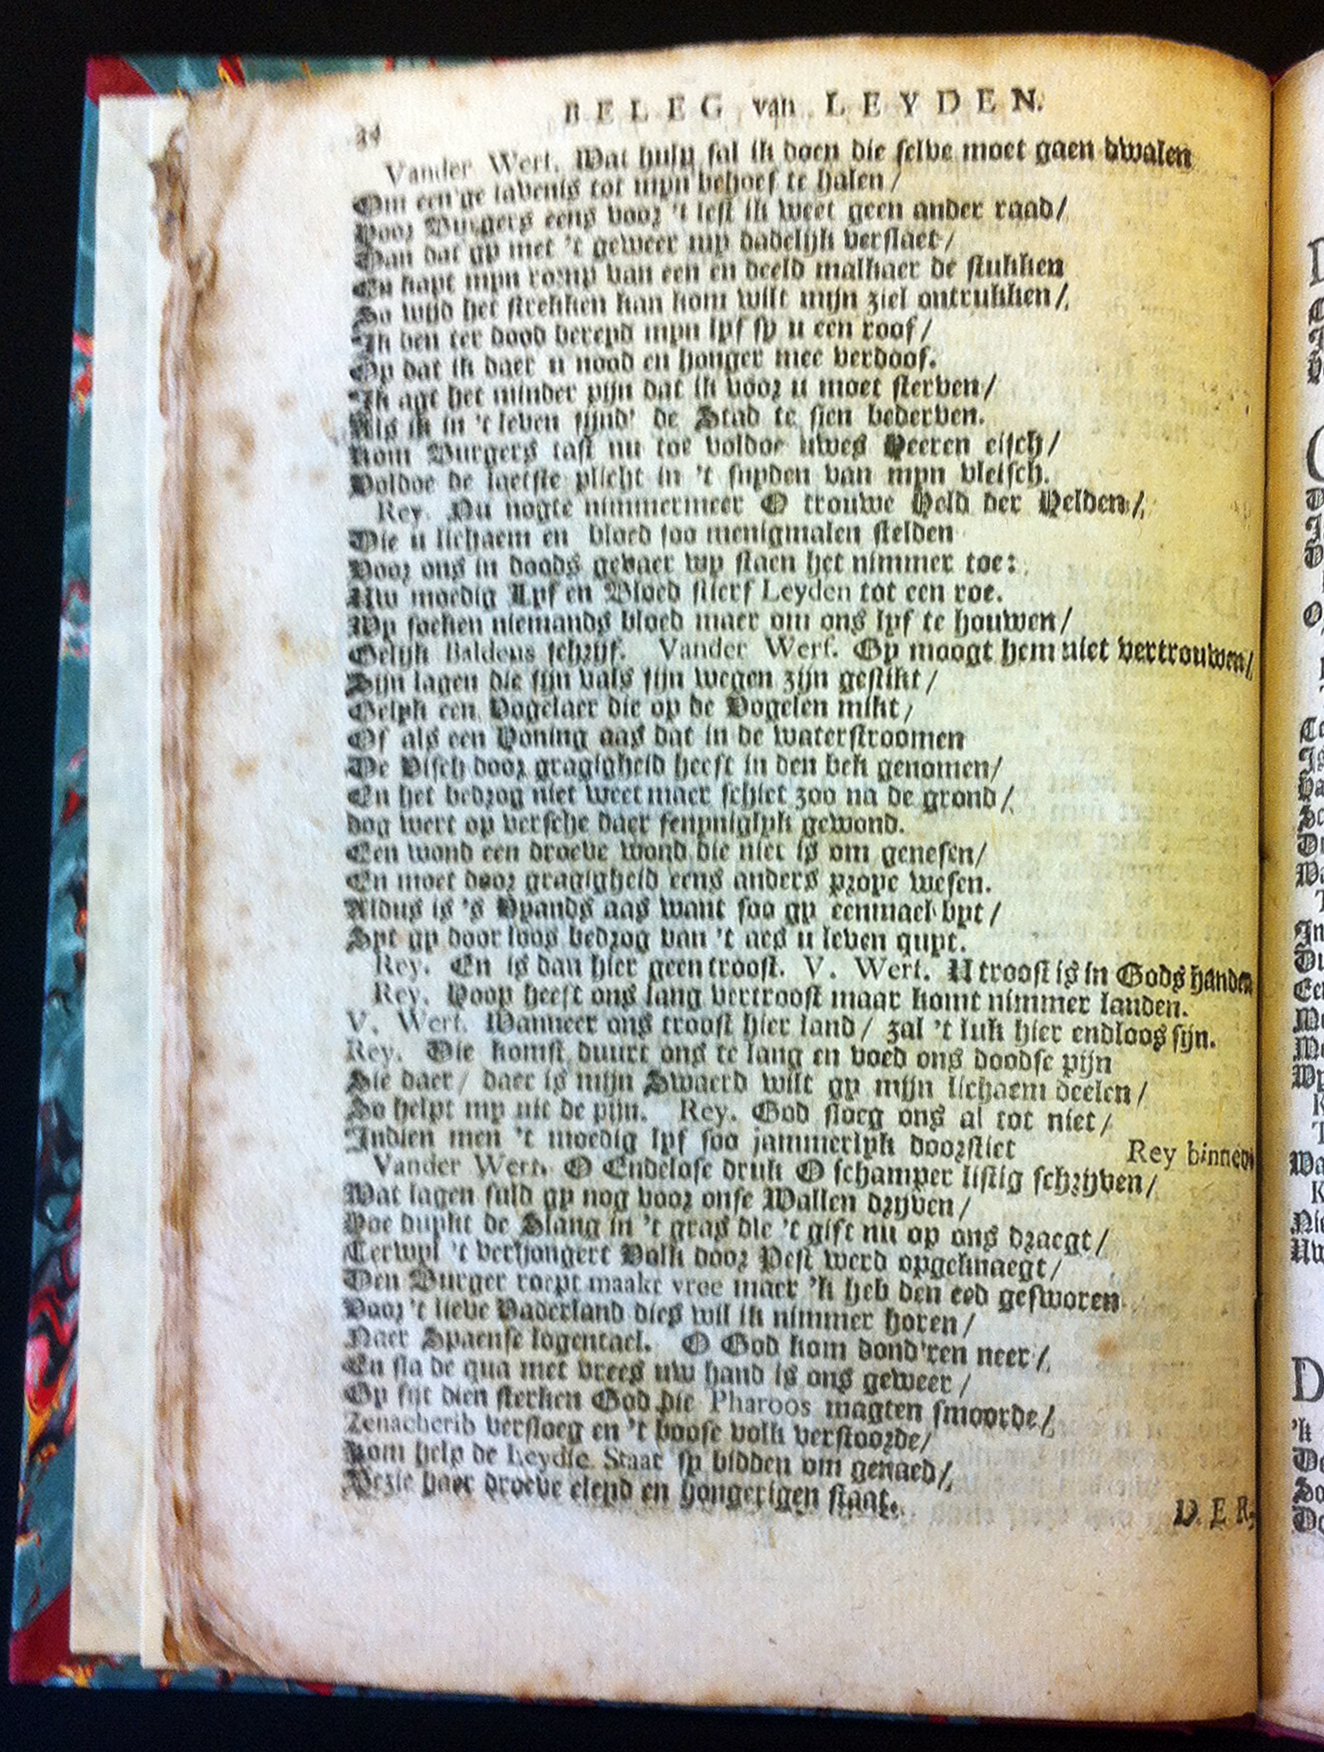 34
BELEG van LEYDEN.
Vander Werf. Wat hulp sal ik doen die selve moet gaen dwalen
Om een'ge lavenis tot mijn behoef te halen /
Voor Burgers eens voor 't lest ik weet geen ander raad /
Dan dat gy met 't geweer my dadelijk verslaet /
En kapt mijn romp van een en deeld malkaer de stukken
So wijd het strekken kan kom wilt mijn ziel ontrukken /
Ik ben ter dood bereyd mijn lyf sy u een roof /
Op dat ik daer u nood en honger mee verdoof.
Ik agt het minder pijn dat ik voor u moet sterven /
Als ik in 't leven sijnd' de Stad te sien bederven.
Kom Burgers tast nu toe voldoe uwes Heeren eisch /
Voldoe de laetste plicht in 't snyden van mijn vleisch.
Rey. Nu nogte nimmermeer O trouwe Held der Helden /
Die u lichaem en bloed soo menigmalen stelden
Voor ons in doods gevaer wy staen het nimmer toe:
Uw moedig Lyf en Bloed stierf Leyden tot een roe.
Wy soeken niemands bloed maer om ons lyf te houwen /
Gelijk Baldeus schrijf. Vander Werf. Gy moogt hem niet vertrouwen /
Sijn lagen die sijn vals sijn wegen zijn gestikt /
Gelyk een Vogelaer die op de Vogelen mikt /
Of als een Honing aas dat in de waterstroomen
De Visch door gragigheid heeft in den bek genomen /
En het bedrog niet weet maer schiet zoo na de grond /
dog wert op versche daer fenyniglyk gewond.
Een wond een droeve wond die niet is om genesen /
En moet door gragigheid eens anders prope wesen.
Aldus is 's Vyands aas want soo gy eenmael byt /
Syt gy door loos bedrog van 't aes u leven quyt.
Rey. En is dan hier geen troost. V. Werf. U troost is in Gods handen
Rey. Hoop heeft ons lang vertroost maar komt nimmer landen.
V. Werf. Wanneer ons troost hier land / zal 't luk hier endloos sijn.
Rey. Die komst duurt ons te lang en voed ons doodse pijn
Sie daer / daer is mijn Swaerd wilt gy mijn lichaem deelen /
So helpt my uit de pijn. Rey. God sloeg ons al tot niet /
Indien men 't moedig lyf soo jammerlyk doorstiet
Rey binnen
Vander Werf. O Endelose druk O schamper listig schrijven /
Wat lagen suld gy nog voor onse Wallen drijven /
Hoe duykt de Slang in 't gras die 't gift nu op ons draegt /
Terwyl 't verhongert Volk door Pest werd opgeknaegt /
Den Burger roept maakt vree maer 'k heb den eed gesworen
Voor 't lieve Vaderland dies wil ik nimmer horen /
Naer Spaense logentael. O God kom dond'ren neer /
En sla de qua met vrees uw hand is ons geweer /
Gy sijt dien sterken God die Pharoos magten smoorde /
Zenacherib versloeg en 't boose volk verstoorde /
Kom help de Leydse Staat sy bidden om genaed /
Bezie haer droeve elend en hongerigen staat.
DER